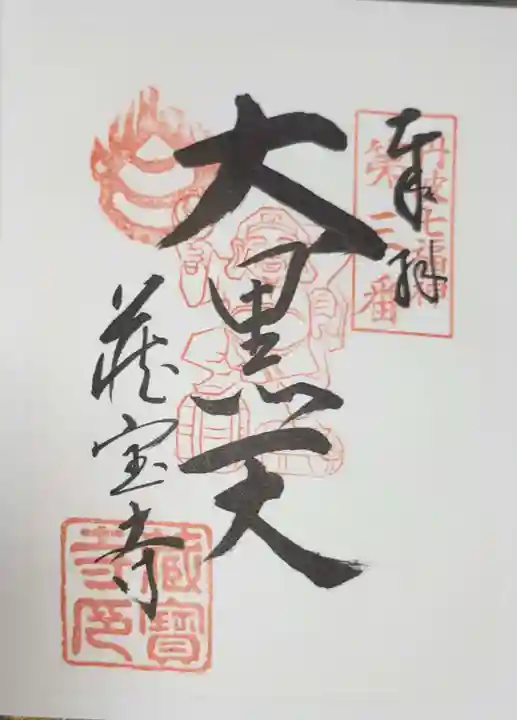 奉拝
丹波七福神
第三番
大黒天
蔵宝寺
蔵寳
寺印